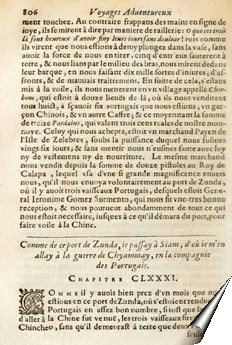 806 Voyages Aduentureux
ment touchez. Au contraire frappans des mains en signe de
ioye, ils se mirent à dire par maniere de raillerie: O que ces trois
là sont heureux d'auoir finy leurs iours sans douleur! puis comme
ils virent que nous estions à demy plongez dans la vase, sans
auoir la force de nous en tirer, cinq d'entr'eux sauterent à
terre, & nous lians par le milieu des bras, nous mirent dedans
leur barque, en nous faisant dix mille sortes d'iniures, d'af-
fronts, & de mauuais traictemens. En suite de cela, s'estans
mis à la voile, ils nous menerent en vn village appellé Cherbom,
qui estoit à douze lieuës de là, où ils nous vendirent
tous huict, à sçauoir six portugais que nous estions, vn gar-
çon Chinois, & vn autre Caffre; & ce moyennant la somme
de treize Pardains, qui valent trois cens reales de nostre mon-
noye. Celuy qui nous achepta, estoit vn marchand Payen de
l'Isle de Zelebres, soubs la puissance duquel nous fusmes
vingt-six iours, & sans mentir nous n'eusmes faute auec luy
ny de vestemens ny de nourriture. Le mesme marchand
nous vendit depuis la somme de douze pistoles au Roy de
Calapa, lequel vsa d'vne si grande magnificence enuers
nous, qu'il nous enuoya volontairement au port de Zunda,
où il y auoit trois vaisseaux Portugais, desquels estoit Gene-
ral Ieronimo Gomez Surmento, qui nous fit vne tres-bonne
reception, & nous pourueut abondamment de tout ce qui
nous estoit necessaire, iusques à ce qu'il démara du port, pour
faire voile à la Chine.
Comme de ce port de Zunda, ie passay à Siam, d'où ie m'en
allay à la guerre de Chyammay, en la compagnie
des Portugais.
CHAPITRE CLXXXI.
COMME il y auoit bien prez d'vn mois que no
estions en ce port de Zunda, où s'estoient rendu
Portugais en assez bon nombre, si tost que la
d'aller à la Chine fut venuë, les trois vaisseaux
Chincheo, sans qu'il demeurast à terre que deux